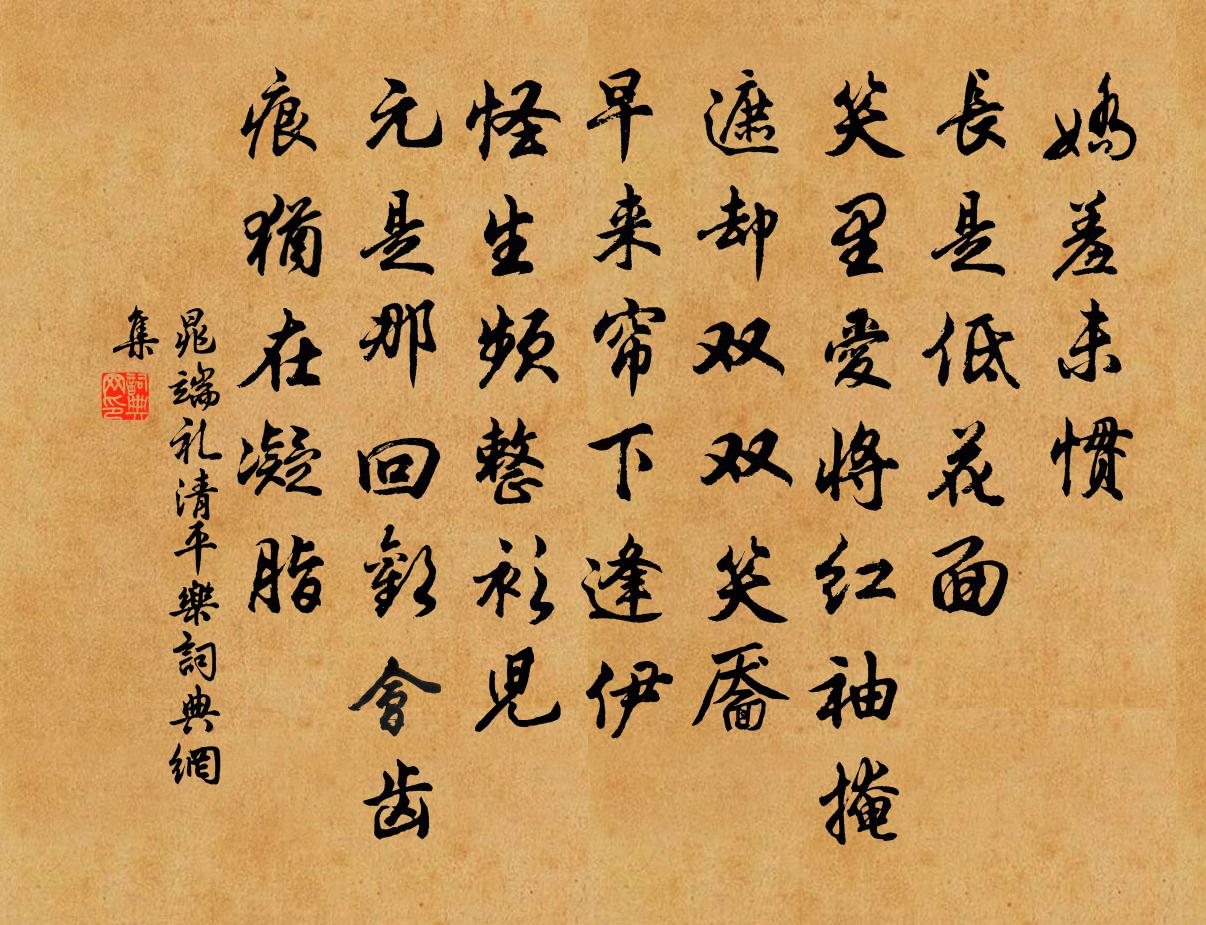 嬌羞未慣
長是低花面
笑里愛將红袖掩
遮却双双笑靨
早来帘下逢伊
怪生頻整衫兒
元是那回歡會齿
痕猶在凝脂
晁端礼清平樂詞典網
集
詞典网印